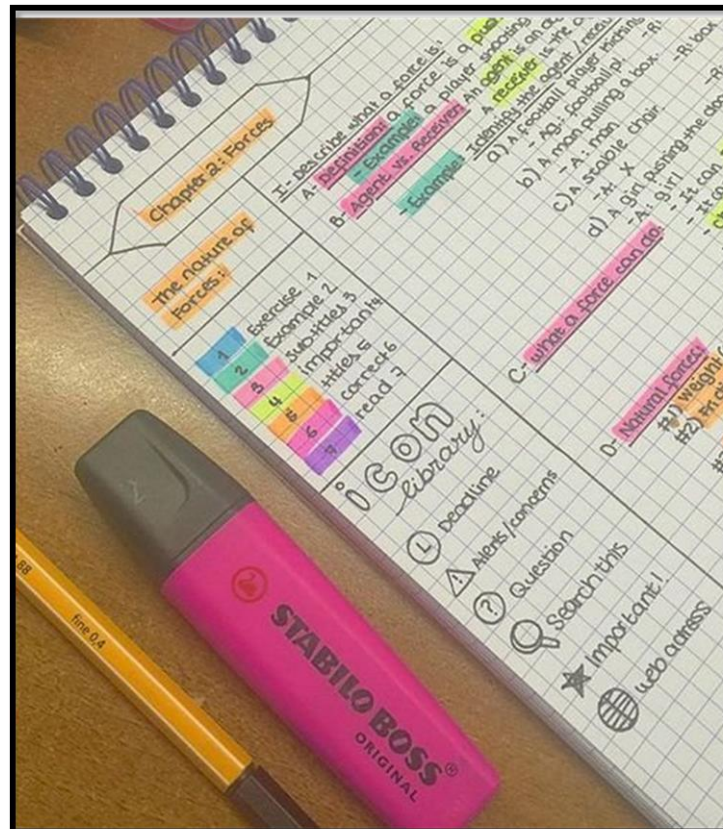 Chapter 2: Forces
The nature of
Forces:
1 Exercise 1
2 Example 2
3 subtitles 3
4 important 4
5 titles 5
6 correct 6
7 read 7
icon
library:
L Deadline
! Alerts/concerns
? Question
Search this
Important!
web adress
I- Describe what a force is:
A- Definition: a force is a push
- Example: a player
B- Agent vs. Receiver: An agent is an
A receiver is the
- Example: Identify the agent / receiver
a) A football player kicking
- Ag: football pl.
b) A man pulling a box.
- A: man
- R: box
c) A stable chair.
- A: X
d) A girl pushing the
- A: girl
C- what a force can do:
- It can
D- Natural forces:
#1) weight
#2)
STABILO BOSS®
ORIGINAL
fine 0,4
88